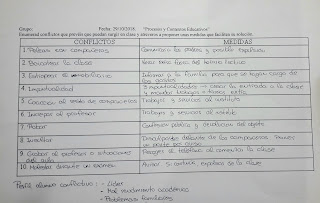 Grupo: Fecha: 29/10/2018. "Procesos y Contextos Educativos"
Enumerad conflictos que preveáis que puedan surgir en clase y atreveros a proponer una medida que facilitan su solución.
CONFLICTOS MEDIDAS
1. Peleas con compañeros Comunicar a los padres y posible expulsión
2. Boicotear la clase
3. Estropear el mobiliario Informar a la familia para que se hagan cargo de los gastos
4. Impuntualidad 3 impuntualidades → vetar la entrada a la clase y mandar trabajos + tareas extra.
5. al resto de compañeros Trabajos y servicios al instituto
6. Insultar al profesor Trabajos y servicios al instituto
7. Robar pública y devolución del objeto
8. Humillar Disculparse delante de los compañeros.
9. Grabar al profesor o situaciones del aula Recoger el teléfono al comenzar la clase
10. Molestar durante un examen Avisar. Si continúa, expulsar de la clase
Perfil alumno conflictivo: - Líder
- Mal rendimiento académico
- Problemas familiares